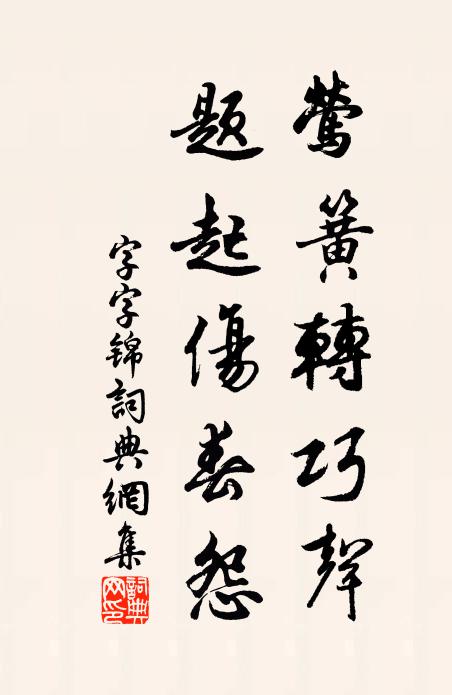 鶯簧轉巧聲
題起傷春怨
字字锦詞典網集
詞典網印